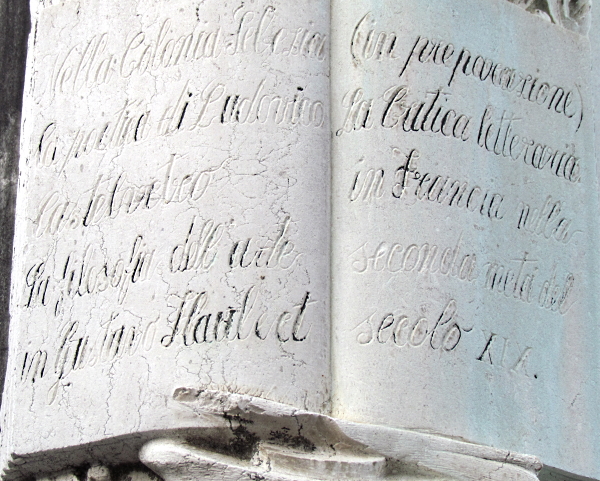 Nella Colonia Felice
la poesia di Ludovico
Castelvetro
La filosofia dell'arte
in Gustavo Flaubert
(in preparazione)
La Critica letteraria
in Francia nella
seconda metà del
secolo XIX.